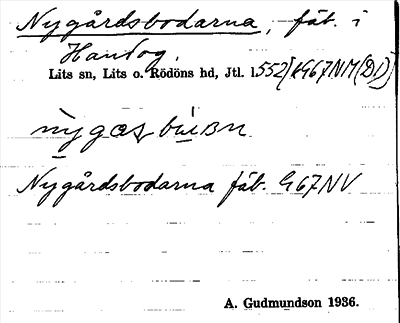 Nygårdsbodarna, fäb. i
Handog.
Lits sn, Lits o. Rödöns hd, Jtl. 1552
Nygårdsbodarna fäb. G67NV
A. Gudmundson 1936.